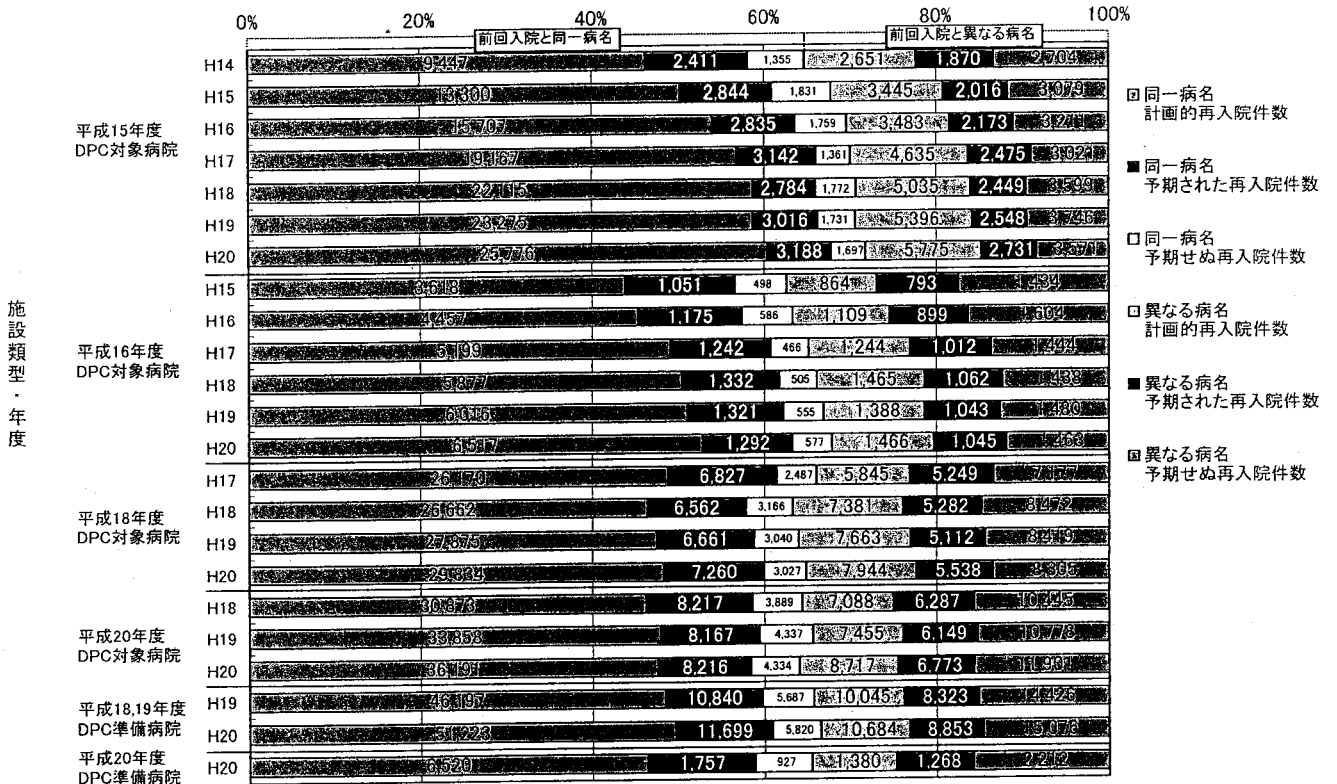 0% 20% 40% 60% 80% 100%
前回入院と同一病名 前回入院と異なる病名
施設類型・年度
平成15年度
DPC対象病院
H14 9,447 2,411 1,355 2,651 1,870 2,704
H15 2,844 1,831 3,445 2,016 3,079
H16 2,835 1,759 3,483 2,173
H17 3,142 1,361 4,635 2,475
H18 2,784 1,772 5,035 2,449 3,599
H19 23,275 3,016 1,731 5,396 2,548 3,746
H20 25,776 3,188 1,697 5,775 2,731
平成16年度
DPC対象病院
H15 3,618 1,051 498 864 793
H16 4,457 1,175 586 1,109 899
H17 1,242 466 1,244 1,012
H18 5,877 1,332 505 1,465 1,062
H19 6,016 1,321 555 1,388 1,043
H20 1,292 577 1,466 1,045
平成18年度
DPC対象病院
H17 26,170 6,827 2,487 5,845 5,249
H18 26,662 6,562 3,166 7,381 5,282 8,472
H19 27,875 6,661 3,040 7,663 5,112 8,419
H20 29,834 7,260 3,027 7,944 5,538
平成20年度
DPC対象病院
H18 30,873 8,217 3,889 7,088 6,287 10,445
H19 33,858 8,167 4,337 7,455 6,149 10,778
H20 36,191 8,216 4,334 8,717 6,773
平成18,19年度
DPC準備病院
H19 46,197 10,840 5,687 10,045 8,323
H20 11,699 5,820 10,684 8,853
平成20年度
DPC準備病院
H20 6,520 1,757 927 1,380 1,268
同一病名
計画的再入院件数
同一病名
予期された再入院件数
同一病名
予期せぬ再入院件数
異なる病名
計画的再入院件数
異なる病名
予期された再入院件数
異なる病名
予期せぬ再入院件数